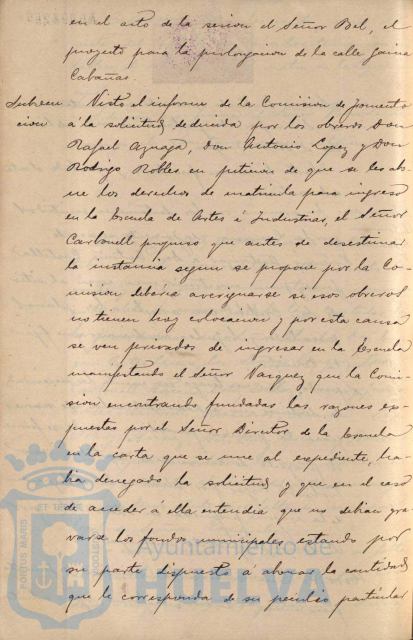 en el acto de la sesion el Señor Bel, el
proyecto para la prolongacion de la calle Jaime
Cabañas.
Subven Visto el informe de la Comision de fomento
cion á la solicitud deducida por los obreros Don
Rafael Aznaga, Don Antonio Lopez y Don
Rodrigo Robles en peticion de que se les abo
ne los derechos de matricula para ingreso
en la Escuela de Artes é Industrias, el Señor
Carbonell propuso que antes de desestimar
la instancia segun se propone por la Co
mision deberia averiguarse si esos obreros
no tienen hoy colocacion y por esta causa
se ven privados de ingresar en la Escuela
manifestando el Señor Vazquez que la Comi
sion encontrando fundadas las razones ex
puestas por el Señor Director de la Escuela
en la carta que se une al espediente, ha
bia denegado la solicitud y que en el caso
de acceder á ella entendia que no debian gra
varse los fondos municipales estando por
su parte dispuesto á abonar la cantidad
que le corresponda de su peculio particular
Ayuntamiento de
HUELVA
PORTUS MARIS
ET TERRAE
CUSTODIA